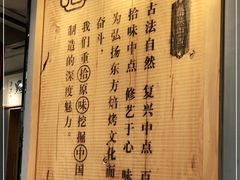 古法自然 复兴中点 百
拾味中点 修艺于心 味
为弘扬东方焙烤文化而
奋斗,
我们重拾原味挖掘中国
制造的深度魅力。